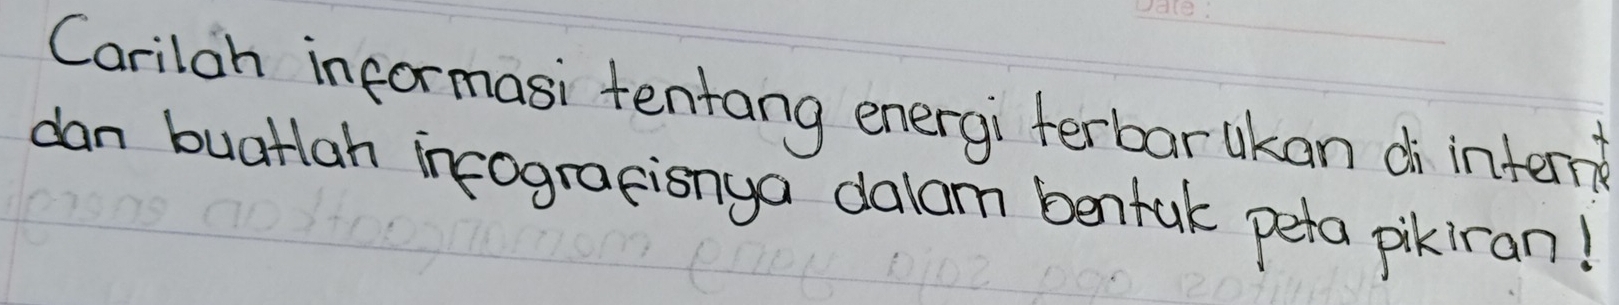 Date :
Carilah informasi tentang energi terbarukan di internet
dan buatlah infografisnya dalam bentuk peta pikiran!